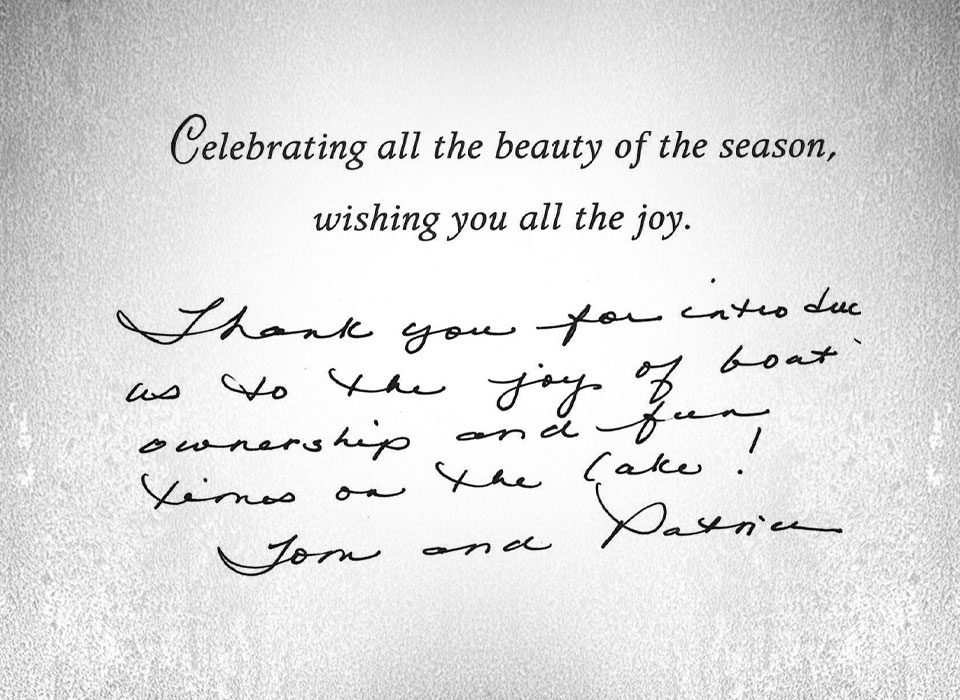 Celebrating all the beauty of the season,
wishing you all the joy.
Thank you for introduc
us to the joy of boat
ownership and fun
times on the lake!
Tom and Patrice